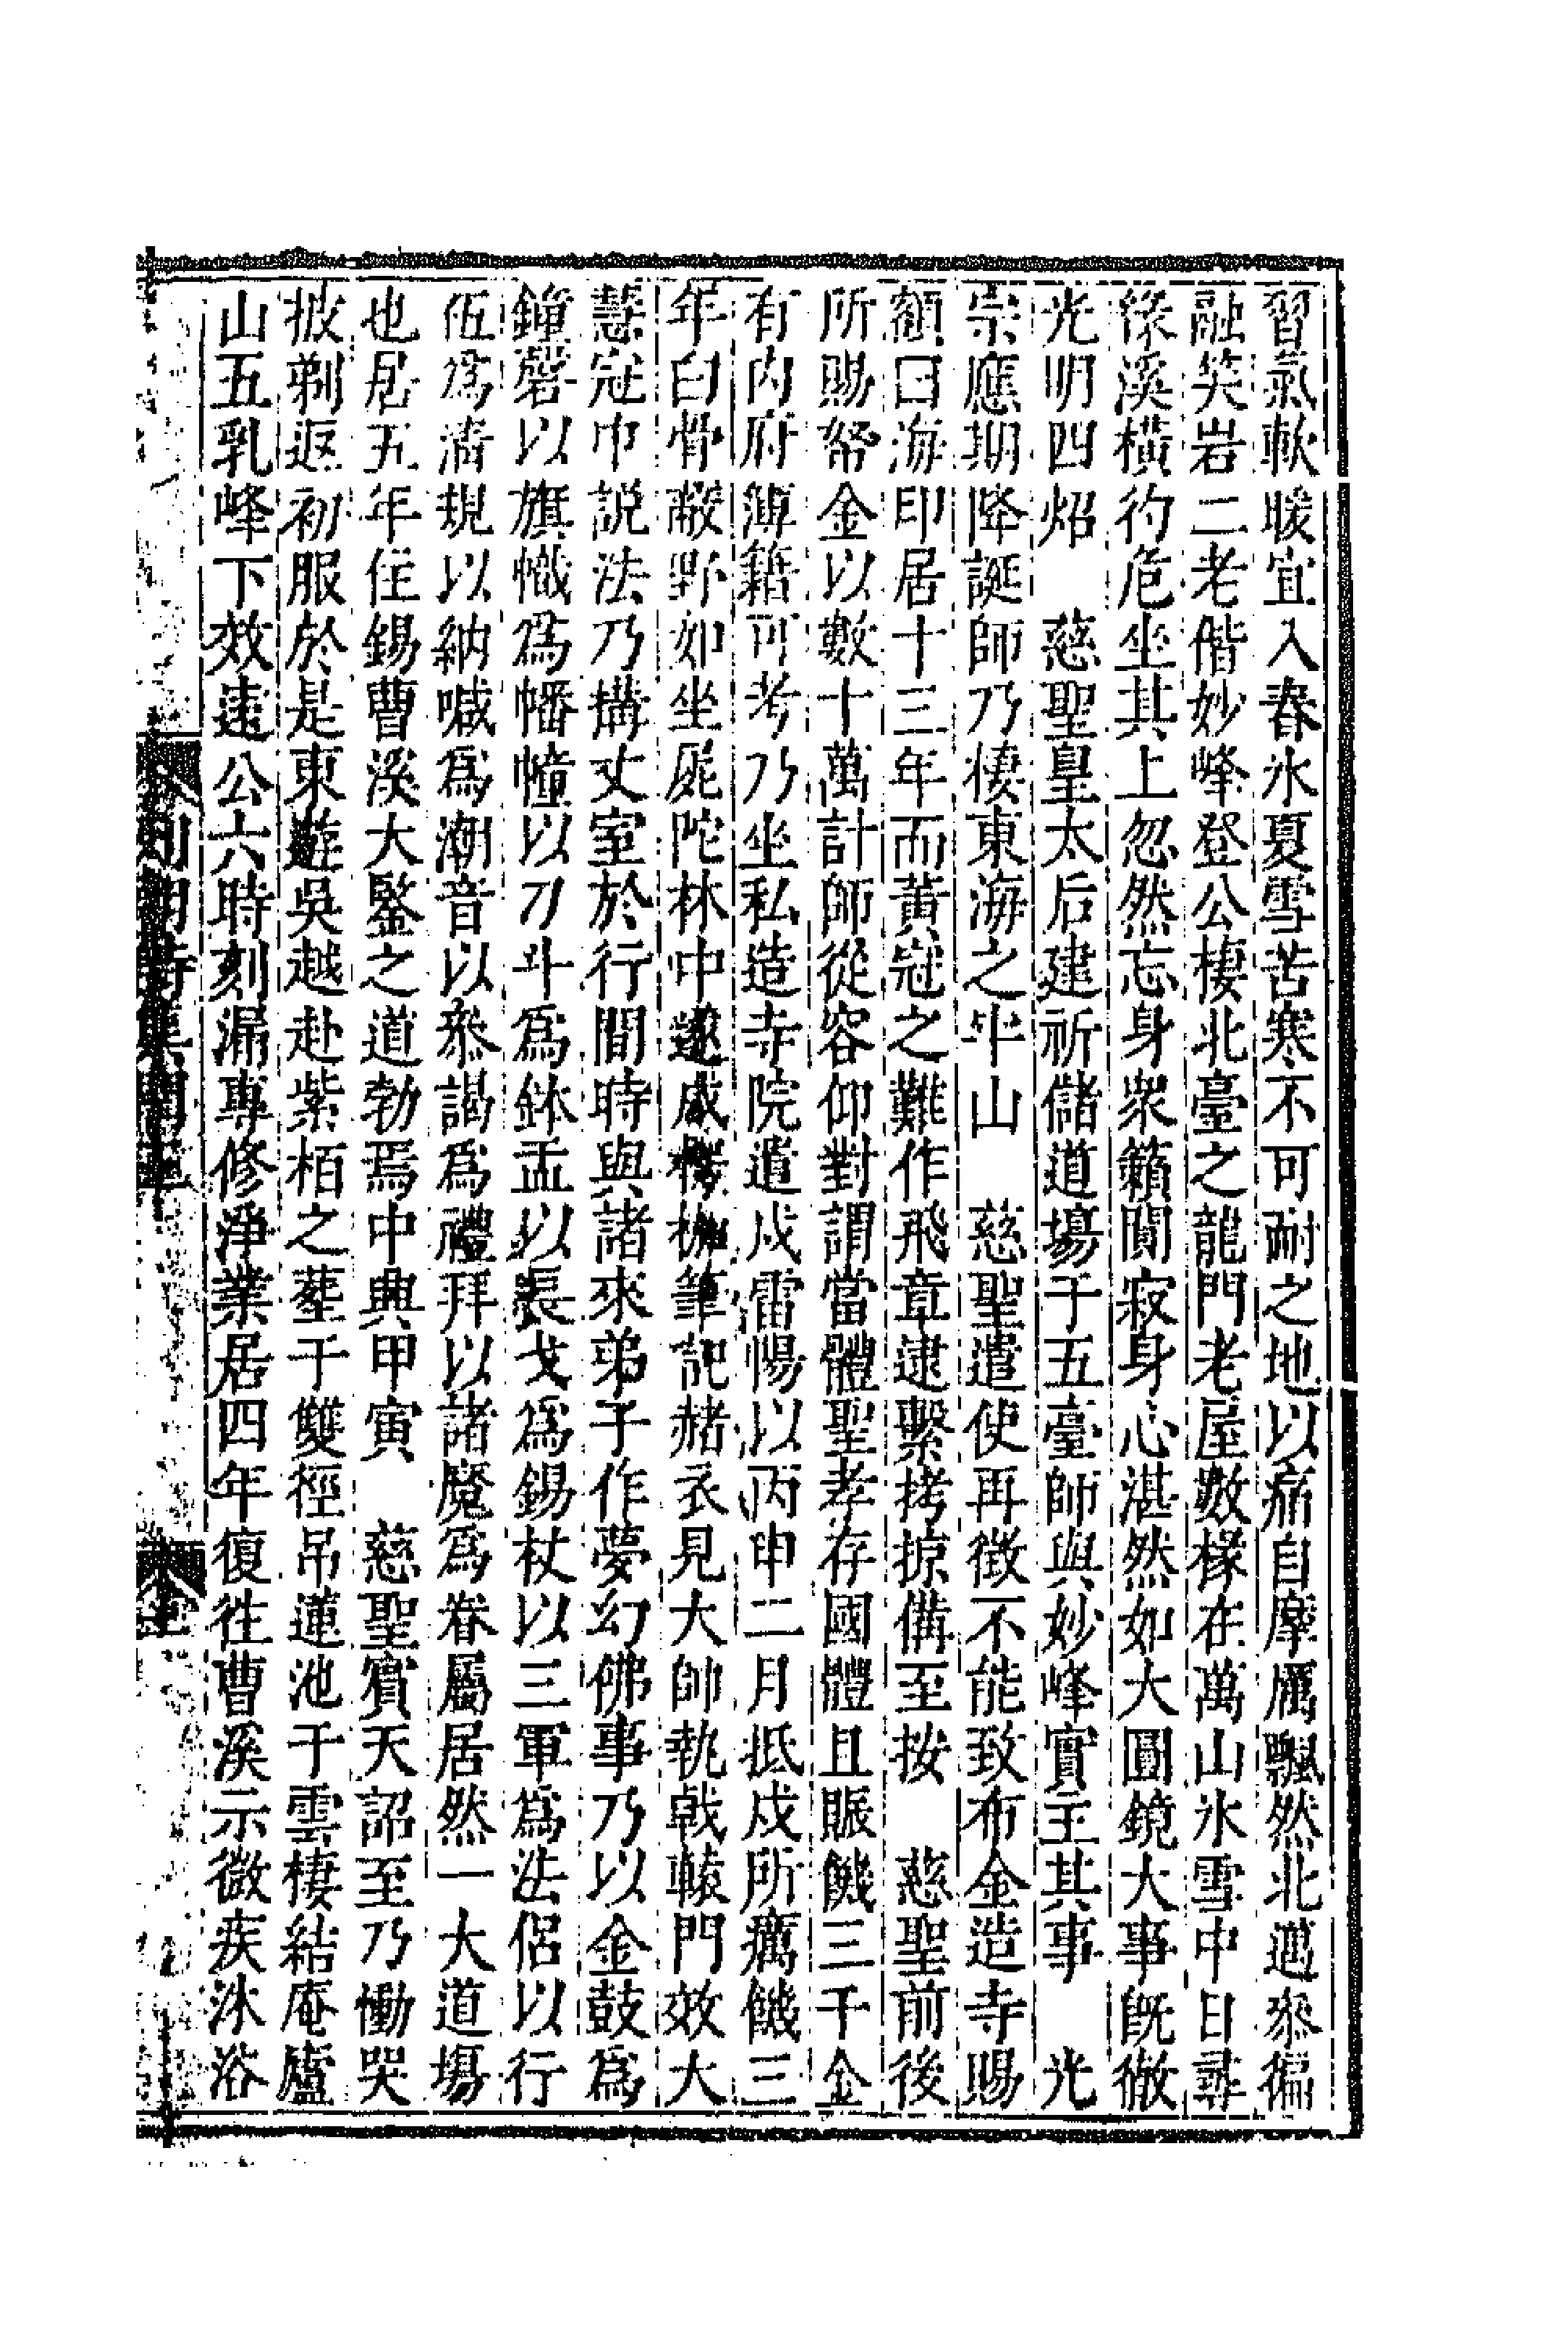 習氣軟暖宜入春氷夏雪苦寒不可耐之地以痛自摩厲飄然北邁叅徧
融笑岩二老偕妙峰登公棲北臺之龍門老屋數椽在萬山氷雪中日尋
緣溪橫彴危坐其上忽然忘身衆籟闃寂身心湛然如大圓鏡大事旣徹
光明四炤 慈聖皇太后建祈儲道塲于五臺師與妙峰實主其事 光
宗應期降誕師乃棲東海之牢山 慈聖遣使再徴不能致布金造寺賜
額曰海印居十三年而黃冠之難作飛章逮繫拷掠備至按 慈聖前後
所賜帑金以數十萬計師從容仰對謂當體聖孝存國體且賑饑三千金
有内府簿籍可考乃坐私造寺院遣戍雷陽以丙申二月抵戍所癘饑三
年白骨蔽野如坐屍陀林中遂成楞枷筆記赭衣見大帥執戟轅門效大
慧冠巾説法乃搆丈室於行間時與諸來弟子作夢幻佛事乃以金鼓爲
鐘磬以旗幟爲幡幢以刀斗爲鉢盂以長戈爲錫杖以三軍爲法侶以行
伍爲淸規以納喊爲潮音以叅謁爲禮拜以諸魔爲眷屬居然一大道塲
也居五年住錫曹溪大鑒之道勃焉中興甲寅 慈聖賓天詔至乃慟哭
披剃返初服於是東遊吳越赴紫栢之塟于雙徑吊蓮池于雲棲結庵廬
山五乳峰下效遠公六時刻漏專修淨業居四年復徃曹溪示微疾沐浴
列朝詩集閏三